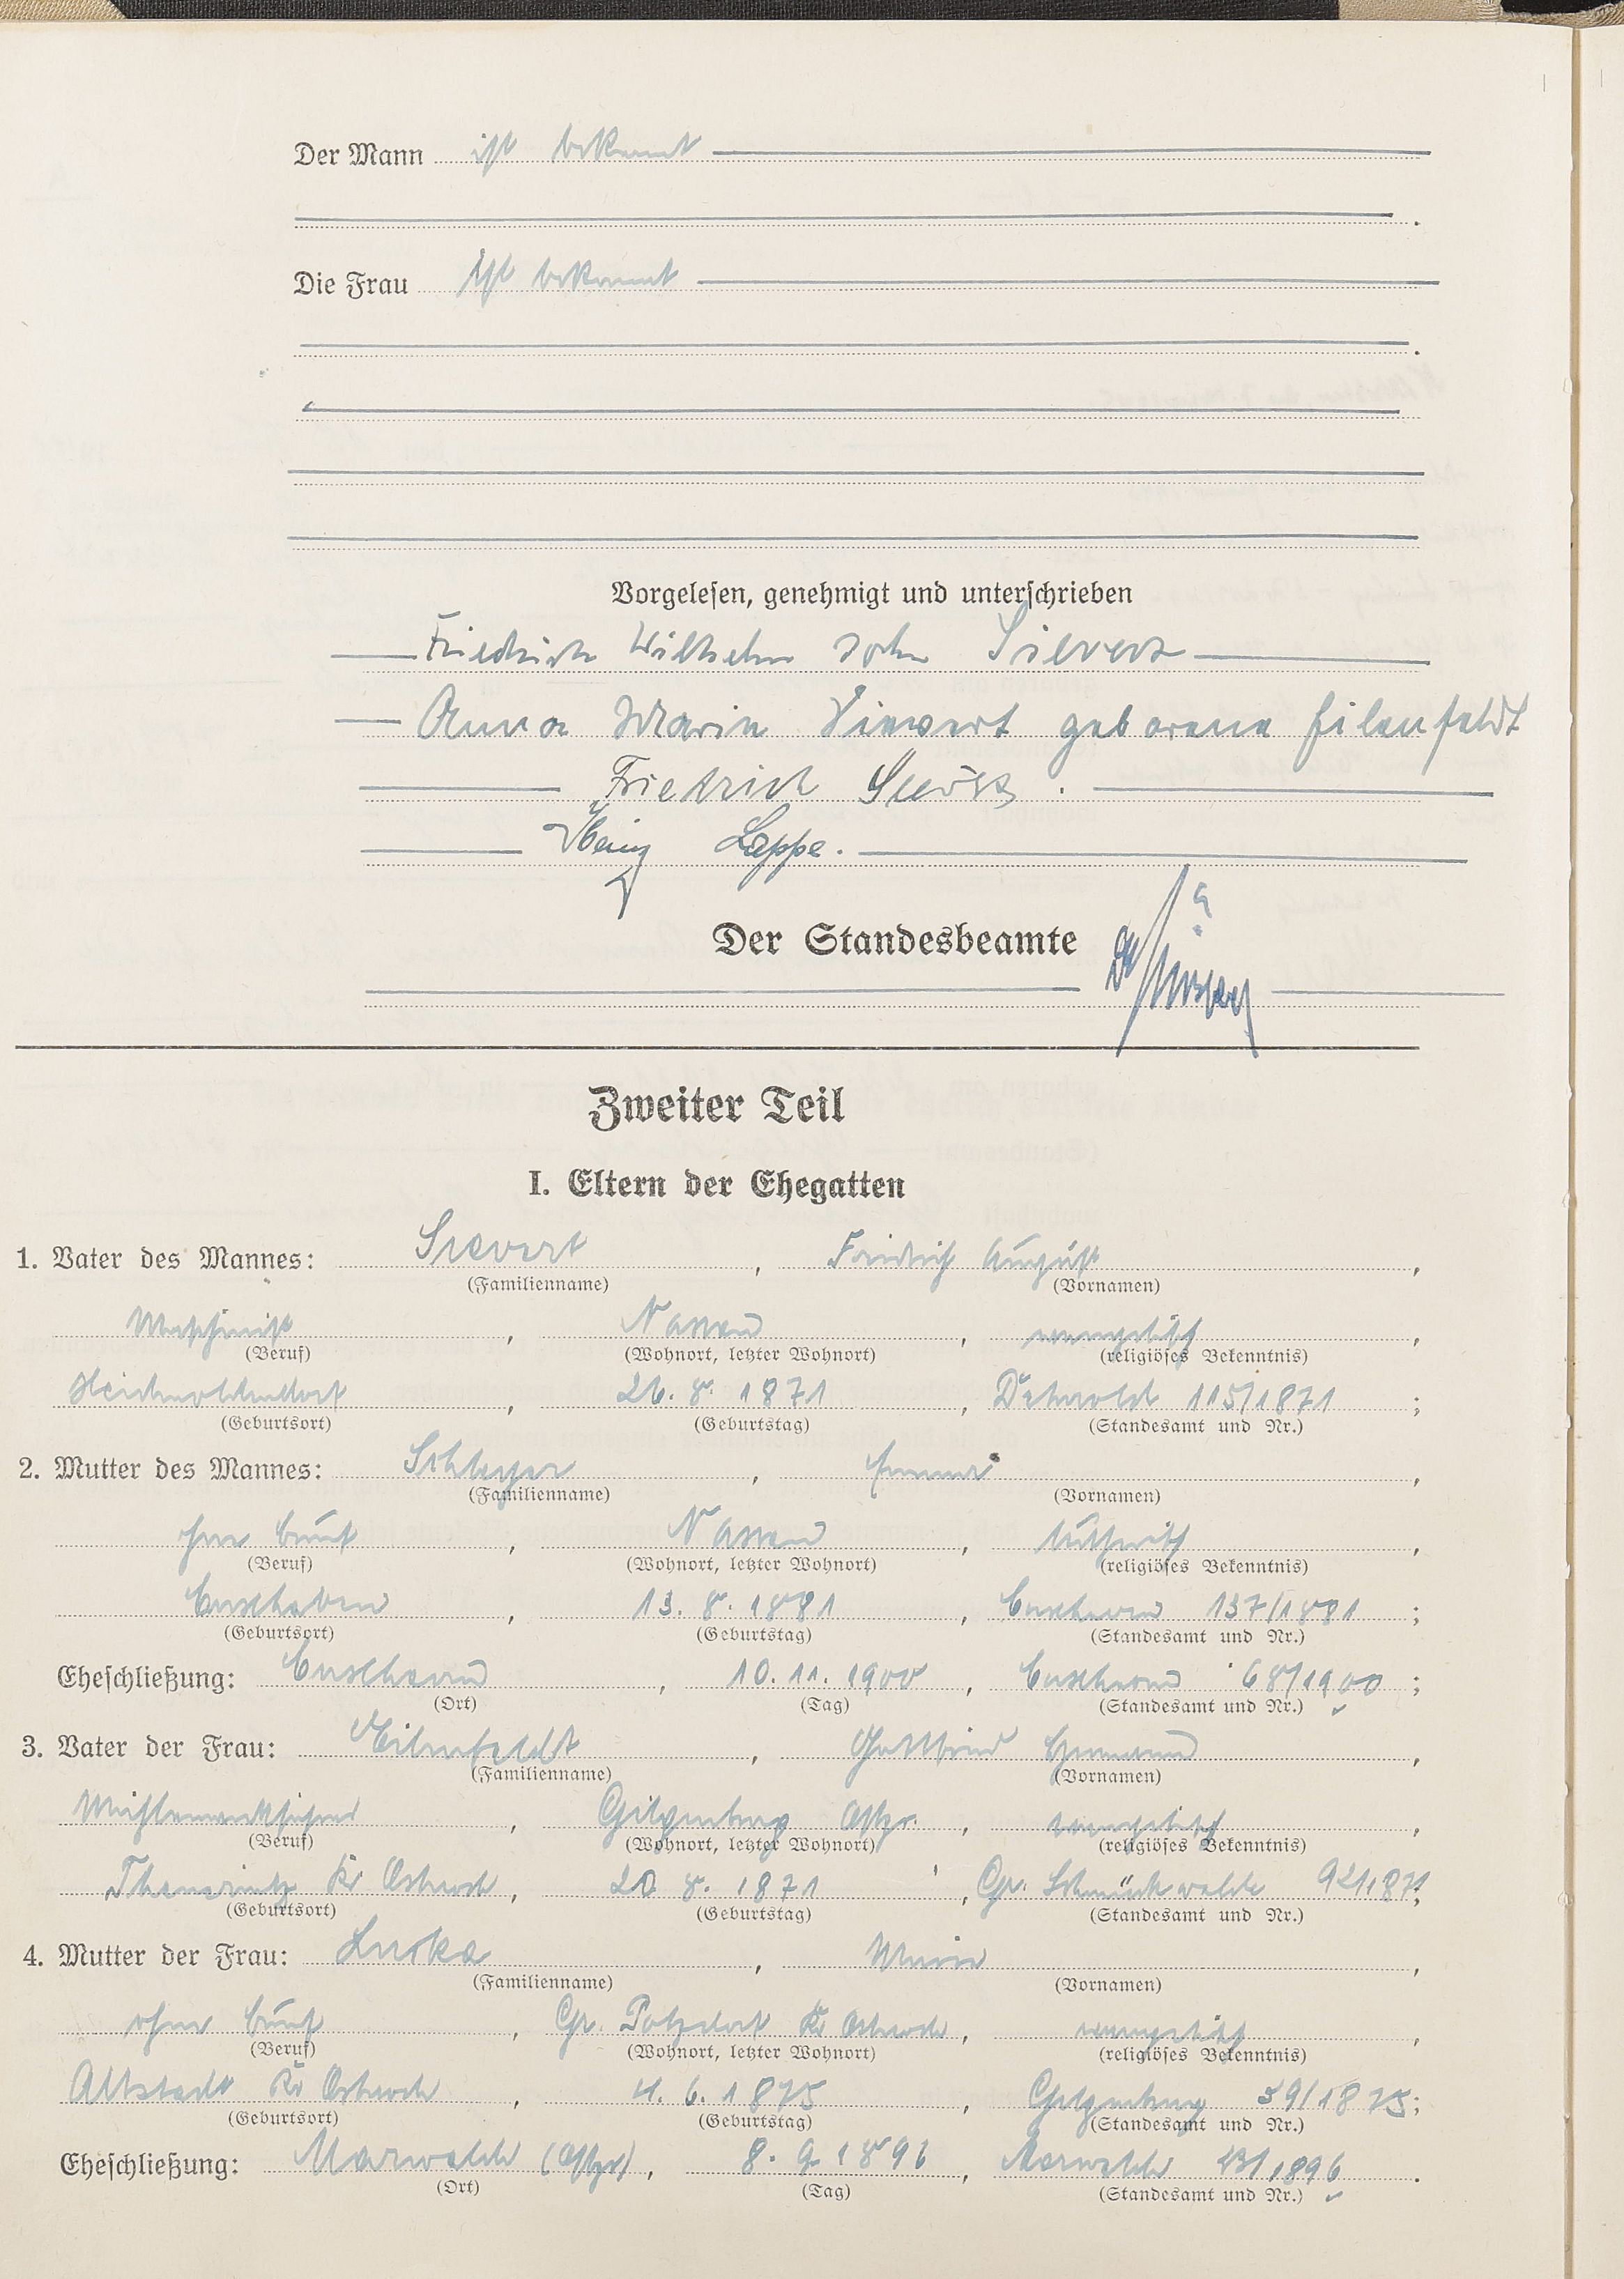 Der Mann ist bekannt
Die Frau ist bekannt
Vorgelesen, genehmigt und unterschrieben
Friedrich Wilhelm John Sievert
Anna Marie Siewert geborene Eilenfeldt
Friedrich
Heinz Lappe.
Der Standesbeamte
Zweiter Teil
I. Eltern der Ehegatten
1. Vater des Mannes: Sievert, Friedrich August,
(Familienname) (Vornamen)
Maschinist, Nassau, evangelisch,
(Beruf) (Wohnort, letzter Wohnort) (religiöses Bekenntnis)
Heidenoldendorf, 26. 8. 1871, Detmold 115/1871;
(Geburtsort) (Geburtstag) (Standesamt und Nr.)
2. Mutter des Mannes: Schleyer, Emma,
(Familienname) (Vornamen)
ohne Beruf, Nassau, lutherisch,
(Beruf) (Wohnort, letzter Wohnort) (religiöses Bekenntnis)
Cuxhaven, 13. 8. 1881, Cuxhaven 137/1881;
(Geburtsort) (Geburtstag) (Standesamt und Nr.)
Eheschließung: Cuxhaven, 10. 11. 1900, Cuxhaven 68/1900;
(Ort) (Tag) (Standesamt und Nr.)
3. Vater der Frau: Eilenfeldt, Gottfried Hermann,
(Familienname) (Vornamen)
Mühlenwerkführer, Gilgenburg Ostpr., evangelisch,
(Beruf) (Wohnort, letzter Wohnort) (religiöses Bekenntnis)
Kr Osterode, 20. 8. 1871, Gr. Schmückwalde
(Geburtsort) (Geburtstag) (Standesamt und Nr.)
4. Mutter der Frau: Luska, Marie,
(Familienname) (Vornamen)
ohne Beruf, Gr. Potzdorf Kr Osterode, evangelisch,
(Beruf) (Wohnort, letzter Wohnort) (religiöses Bekenntnis)
Altstadt Kr Osterode, 4. 6. 1875, Gilgenburg 59/1875;
(Geburtsort) (Geburtstag) (Standesamt und Nr.)
Eheschließung: Marwalde (Ostpr), 8. 9. 1896, Marwalde
(Ort) (Tag) (Standesamt und Nr.)